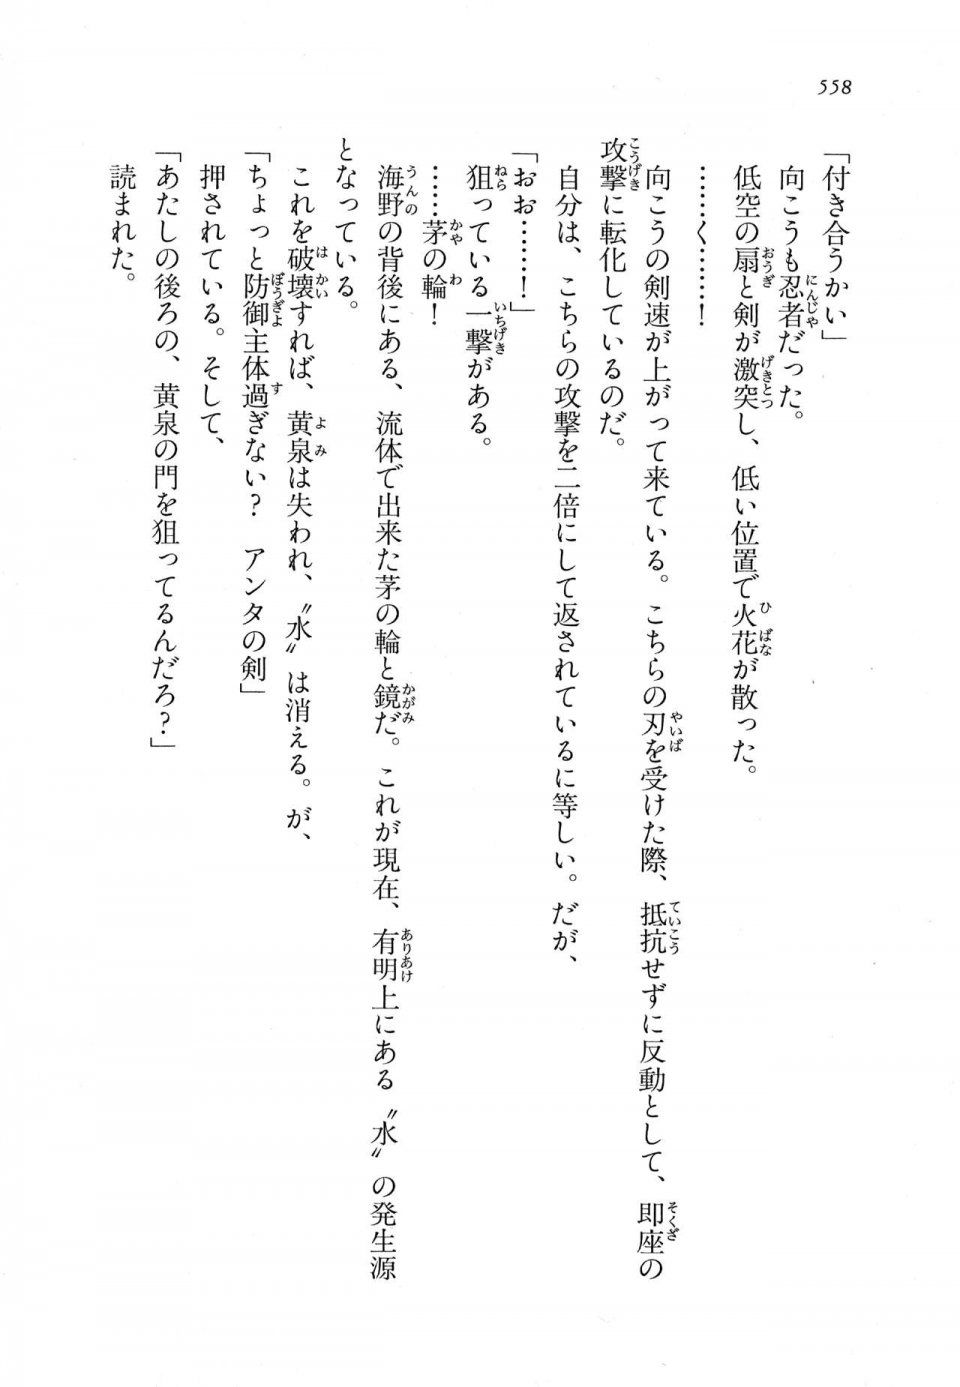 558
「付き合うかい」
向こうも忍者だった。
低空の扇と剣が激突し、低い位置で火花が散った。
……く……！
向こうの剣速が上がって来ている。こちらの刃を受けた際、抵抗せずに反動として、即座の
攻撃に転化しているのだ。
自分は、こちらの攻撃を二倍にして返されているに等しい。だが、
「おお……！」
狙っている一撃がある。
……茅の輪！
海野の背後にある、流体で出来た茅の輪と鏡だ。これが現在、有明上にある〝水〟の発生源
となっている。
これを破壊すれば、黄泉は失われ、〝水〟は消える。が、
「ちょっと防御主体過ぎない？　アンタの剣」
押されている。そして、
「あたしの後ろの、黄泉の門を狙ってるんだろ？」
読まれた。